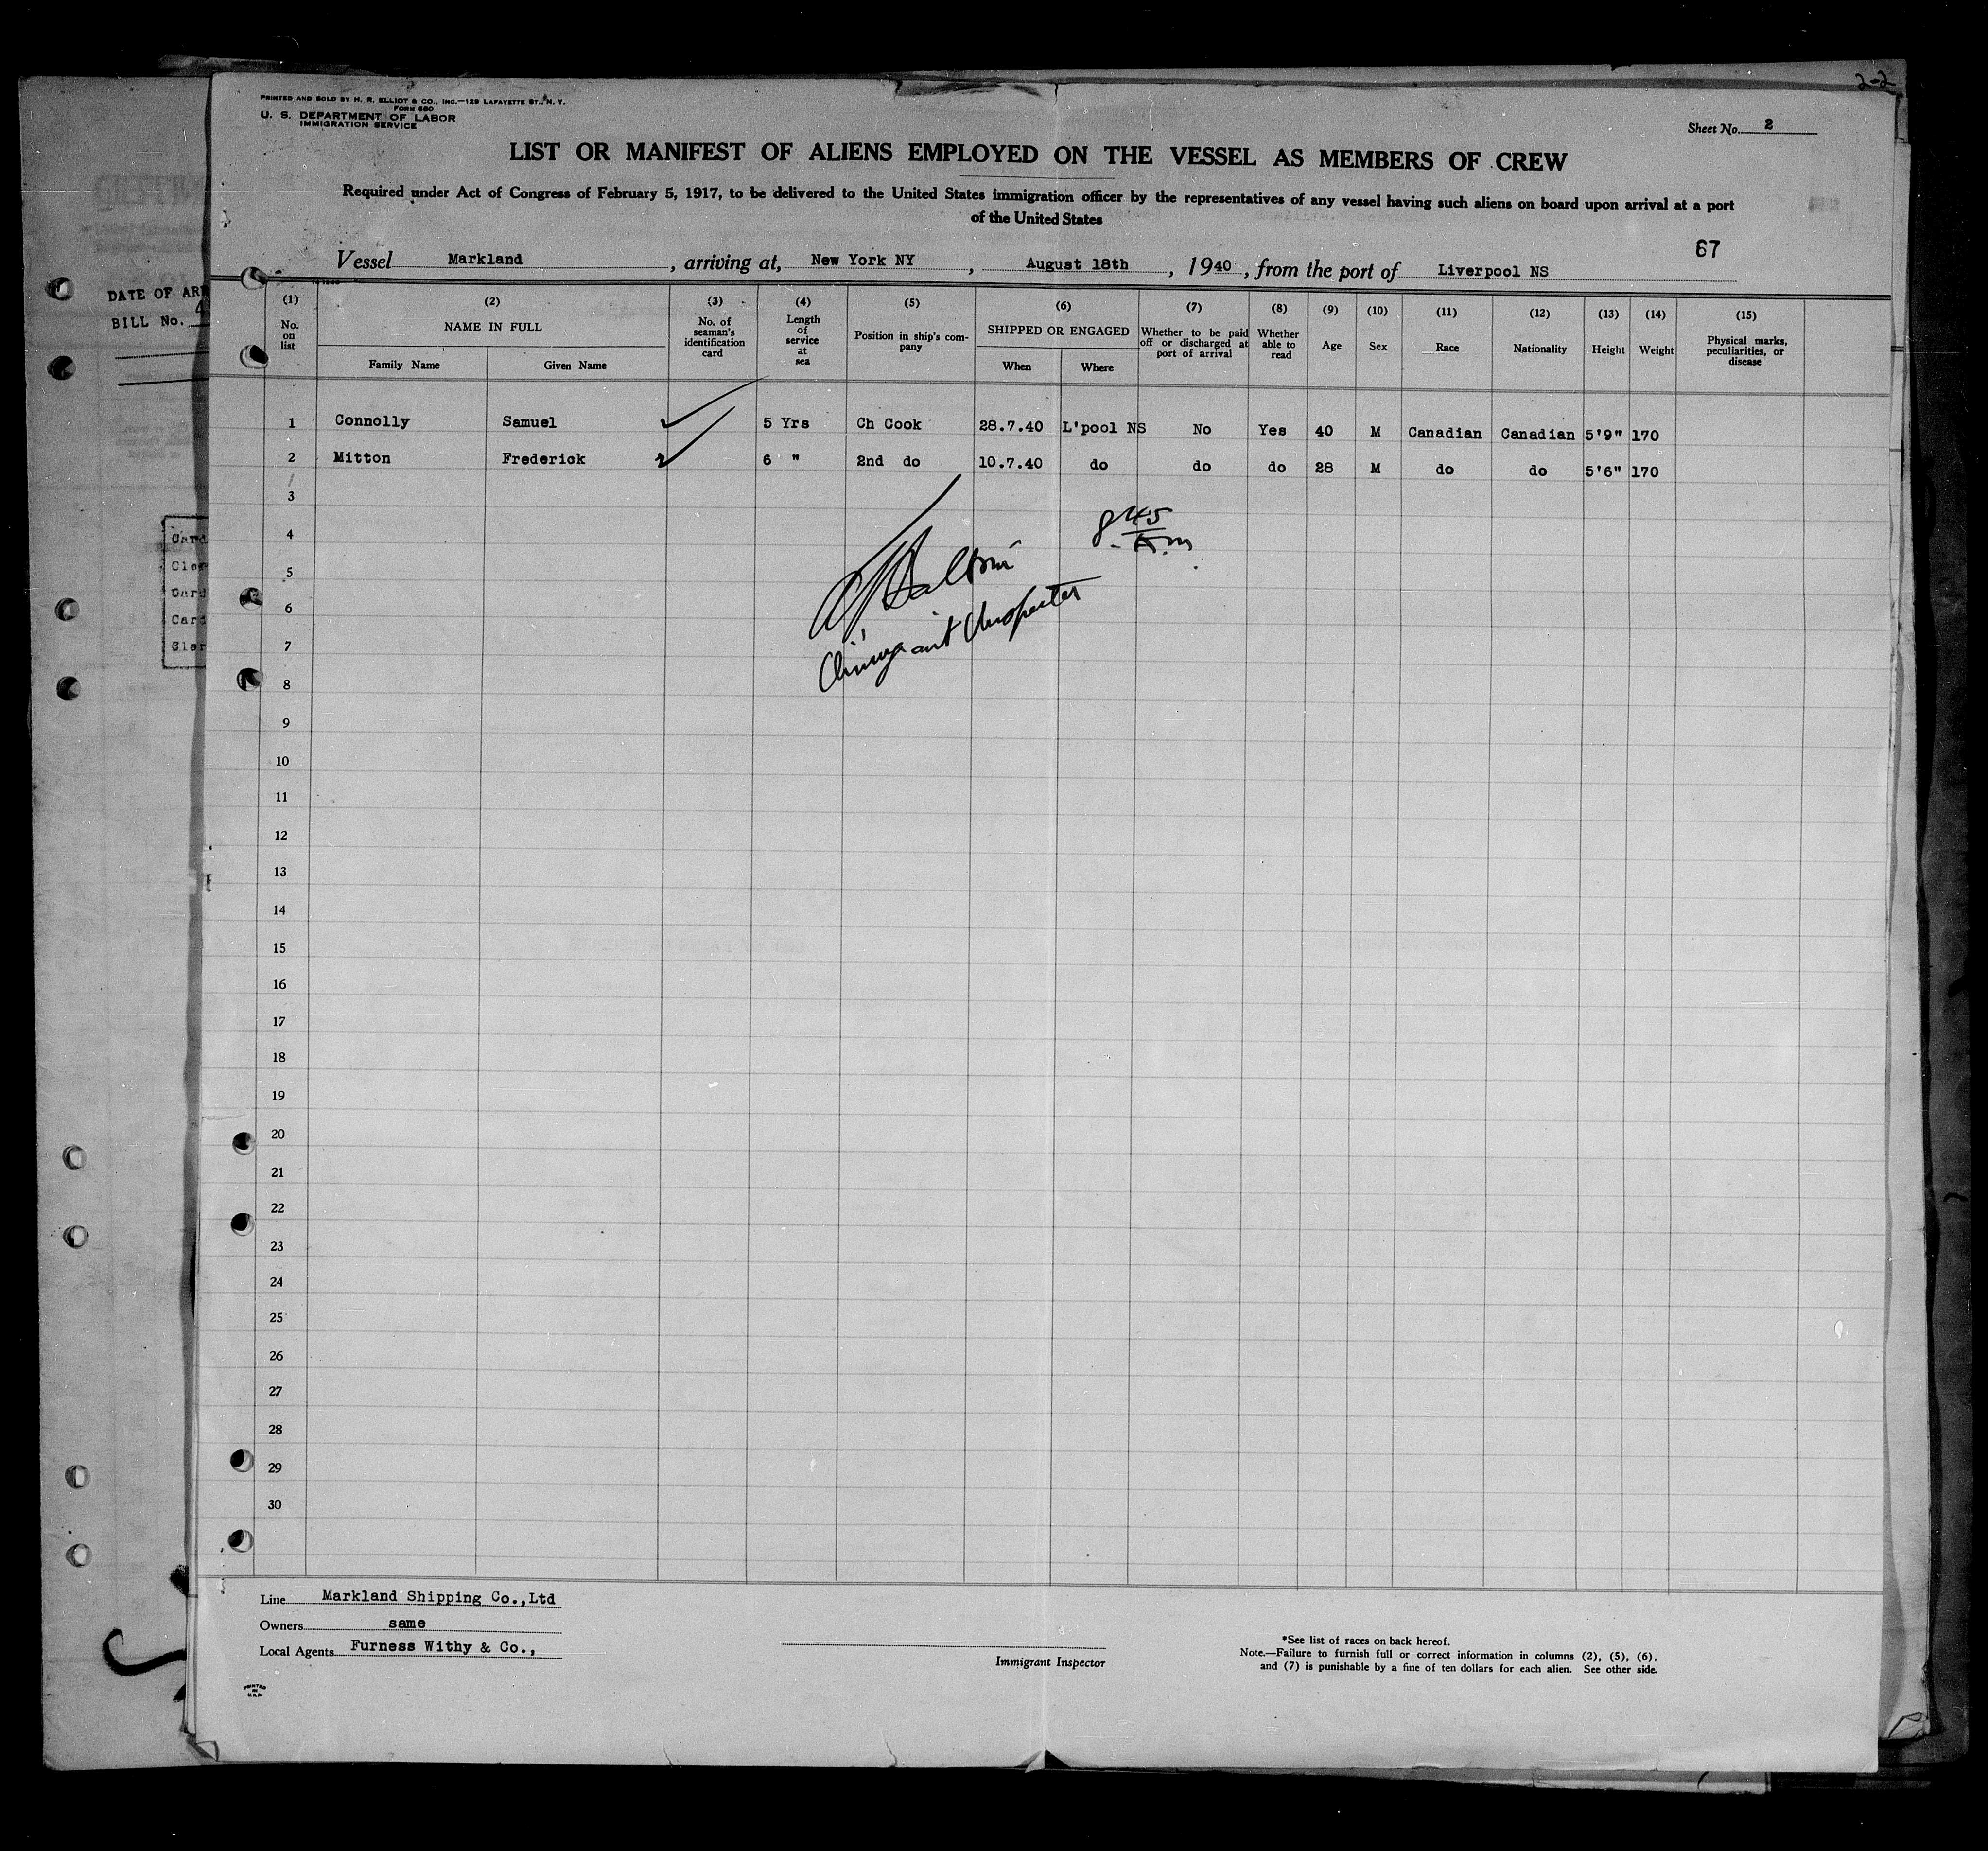 2-2
PRINTED AND SOLD BY H. R. ELLIOT & CO., INC.—129 LAFAYETTE ST., N. Y.
FORM 680
U. S. DEPARTMENT OF LABOR
IMMIGRATION SERVICE
Sheet No. 2
LIST OR MANIFEST OF ALIENS EMPLOYED ON THE VESSEL AS MEMBERS OF CREW
Required under Act of Congress of February 5, 1917, to be delivered to the United States immigration officer by the representatives of any vessel having such aliens on board upon arrival at a port
of the United States
67
Vessel Markland, arriving at, New York NY, August 18th, 1940, from the port of Liverpool NS
DATE OF ARR
BILL No. 4
(1) (2) (3) (4) (5) (6) (7) (8) (9) (10) (11) (12) (13) (14) (15)
No. on list
NAME IN FULL
Family Name Given Name
No. of seaman's identification card
Length of service at sea
Position in ship's company
SHIPPED OR ENGAGED
When Where
Whether to be paid off or discharged at port of arrival
Whether able to read
Age
Sex
Race
Nationality
Height
Weight
Physical marks, peculiarities, or disease
1 Connolly Samuel 5 Yrs Ch Cook 28.7.40 L'pool NS No Yes 40 M Canadian Canadian 5'9" 170
2 Mitton Frederick 6 " 2nd do 10.7.40 do do do 28 M do do 5'6" 170
3
4
5
6
7
8
9
10
11
12
13
14
15
16
17
18
19
20
21
22
23
24
25
26
27
28
29
30
8 45 A.m
Immigrant Inspector
Card
Card
Card
Line Markland Shipping Co.,Ltd
Owners same
Local Agents Furness Withy & Co.,
Immigrant Inspector
*See list of races on back hereof.
Note.—Failure to furnish full or correct information in columns (2), (5), (6),
and (7) is punishable by a fine of ten dollars for each alien. See other side.
PRINTED
IN
U.S.A.